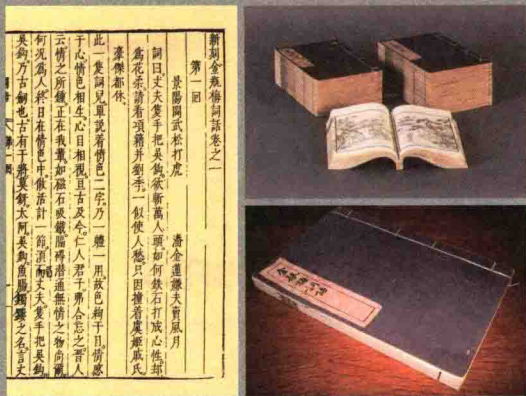 新刻金瓶梅詞話卷之一
第一回
景陽岡武松打虎 潘金蓮嫌夫賣風月
詞曰丈夫隻手把吳鈎欲斬萬人頭如何鉄石打成心性却
為花柔請看項籍并劉季一似使人愁只因撞着虞姬戚氏
豪傑都休
此一隻詞兒單說着情色二字乃一體一用故色絢于目情感
于心情色相生心目相視亘古及今仁人君子弗合忘之晋人
云情之所鍾正在我輩如磁石吸鐵隔碍潜通無情之物尚爾
何况為人終日在情色中做活計一節須而丈夫隻手把吳鈎
吳鈎乃古劍也古有干將莫鋣太阿吳鈎魚腸躅鏤之名言丈
金瓶梅詞話